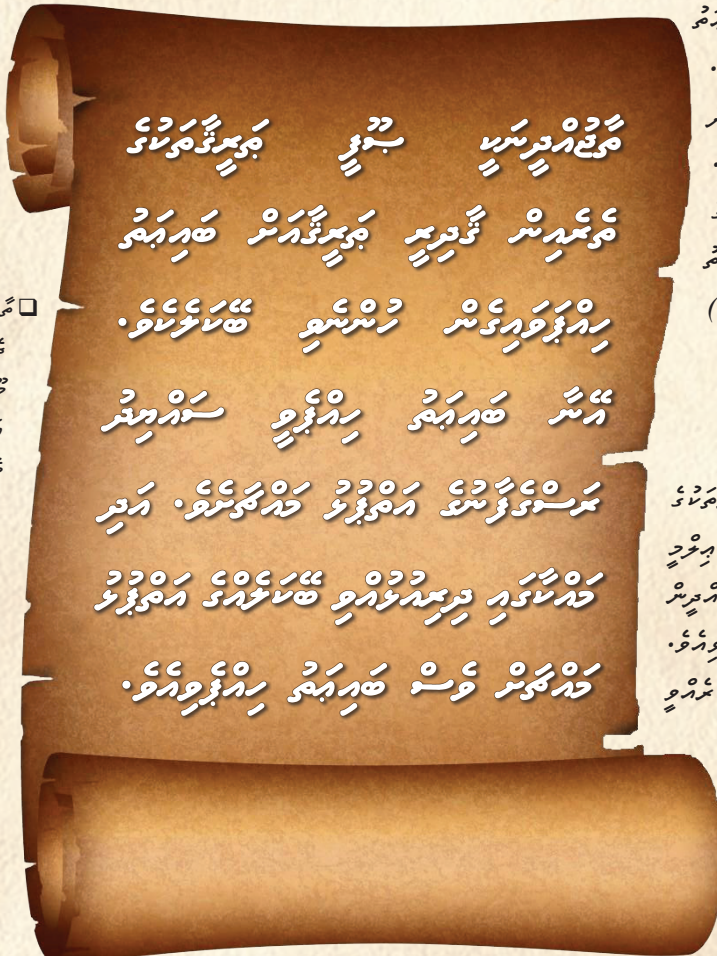 ތާޖުއްދީނަކީ ޞޫފީ ޠަރީޤާތަކުގެ
ތެރެއިން ޤާދިރީ ޠަރީޤާއަށް ބައިޢަތު
ހިއްޕަވައިގެން ހުންނެވި ބޭކަލެކެވެ.
އޭނާ ބައިޢަތު ހިއްޕެވީ ސައްޔިދު
ރަސްގެފާނުގެ އަތްޕުޅު މައްޗަށެވެ. އަދި
މައްކާގައި ދިރިއުޅުއްވި ބޭކަލެއްގެ އަތްޕުޅު
މައްޗަށް ވެސް ބައިޢަތު ހިއްޕެވިއެވެ.